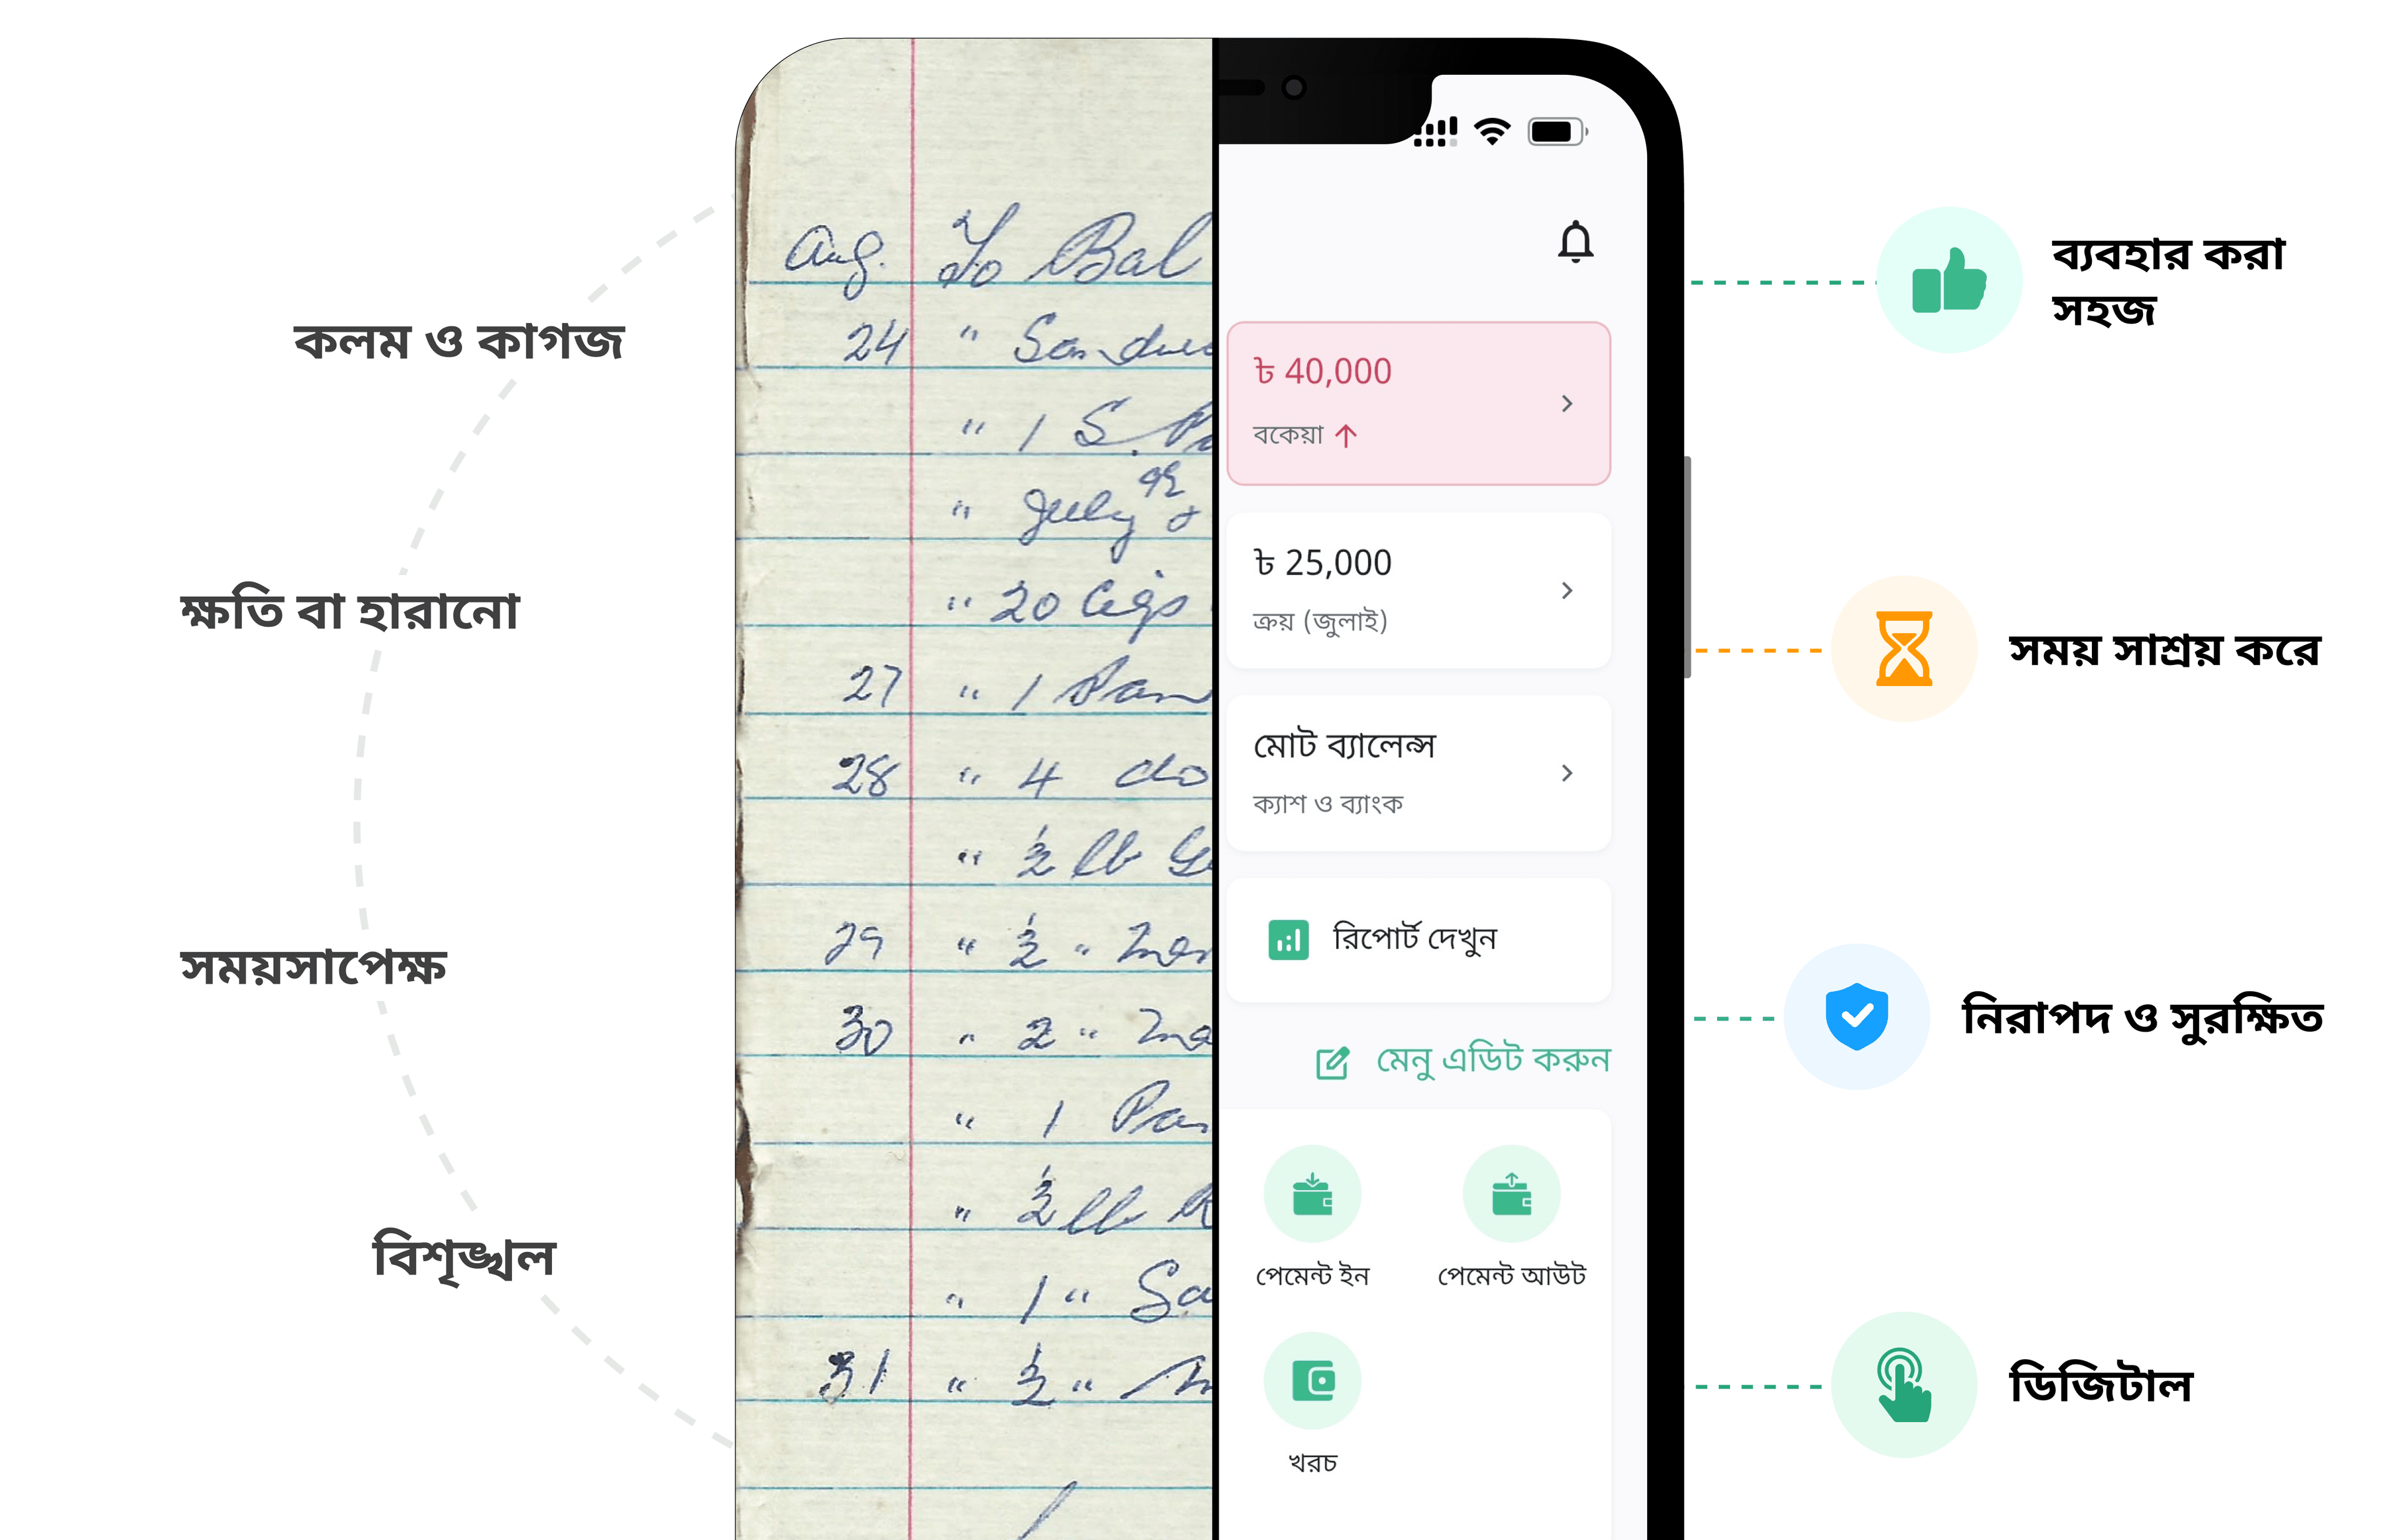 কলম ও কাগজ
ক্ষতি বা হারানো
সময়সাপেক্ষ
বিশৃঙ্খল
Aug. To Bal
24 "
" 1 S.
" July
" 20 Cigs
27 " 1
28 " 4 do
" ½ lb
29 " ½ "
30 " 2 "
" 1
" ½ lb
" 1 "
31 " ½ "
৳ 40,000
বকেয়া
৳ 25,000
ক্রয় (জুলাই)
মোট ব্যালেন্স
ক্যাশ ও ব্যাংক
রিপোর্ট দেখুন
মেনু এডিট করুন
পেমেন্ট ইন পেমেন্ট আউট
খরচ
ব্যবহার করা
সহজ
সময় সাশ্রয় করে
নিরাপদ ও সুরক্ষিত
ডিজিটাল